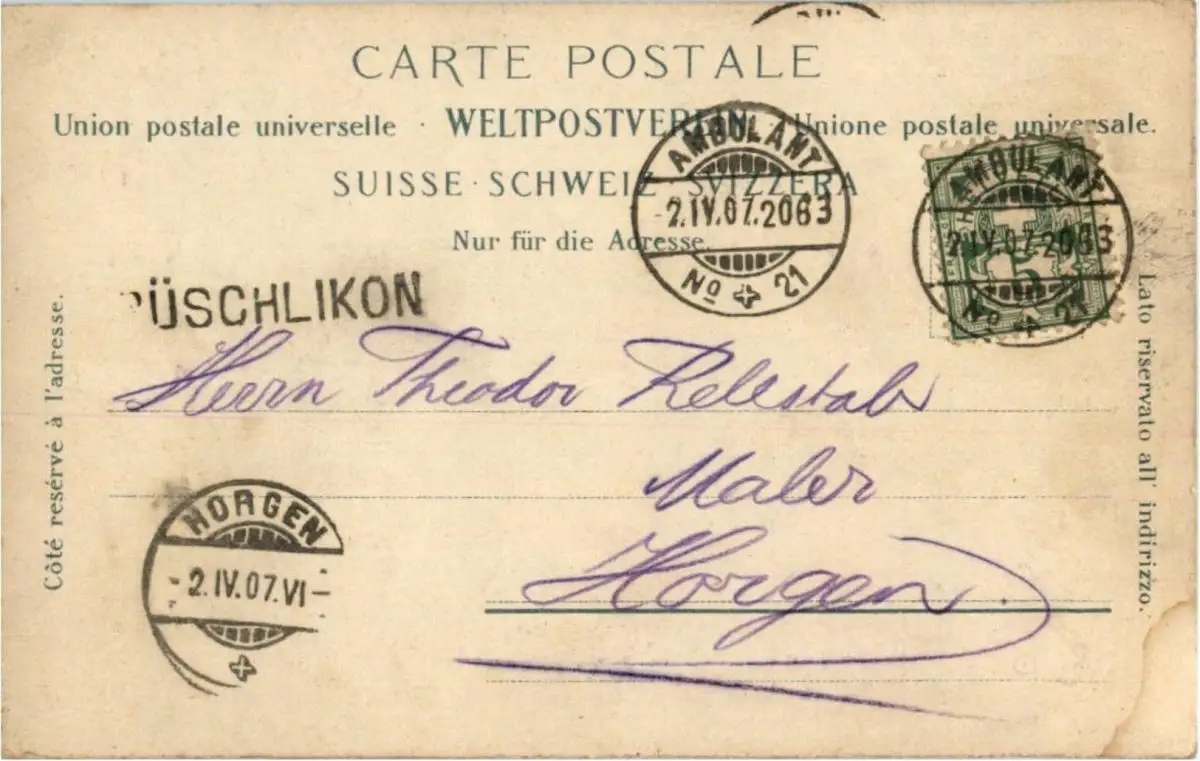 CARTE POSTALE
Union postale universelle · WELTPOSTVEREIN · Unione postale universale.
SUISSE · SCHWEIZ · SVIZZERA
Nur für die Adresse.
AMBULANT
2.IV.07.2063
No 21
AMBULANT
2.IV.07-2063
No 21
5
ÜSCHLIKON
Côté resérvé à l'adresse.
Lato riservato all' indirizzo.
Herrn Theodor Rellstab
Maler
Horgen.
HORGEN
2.IV.07.VI